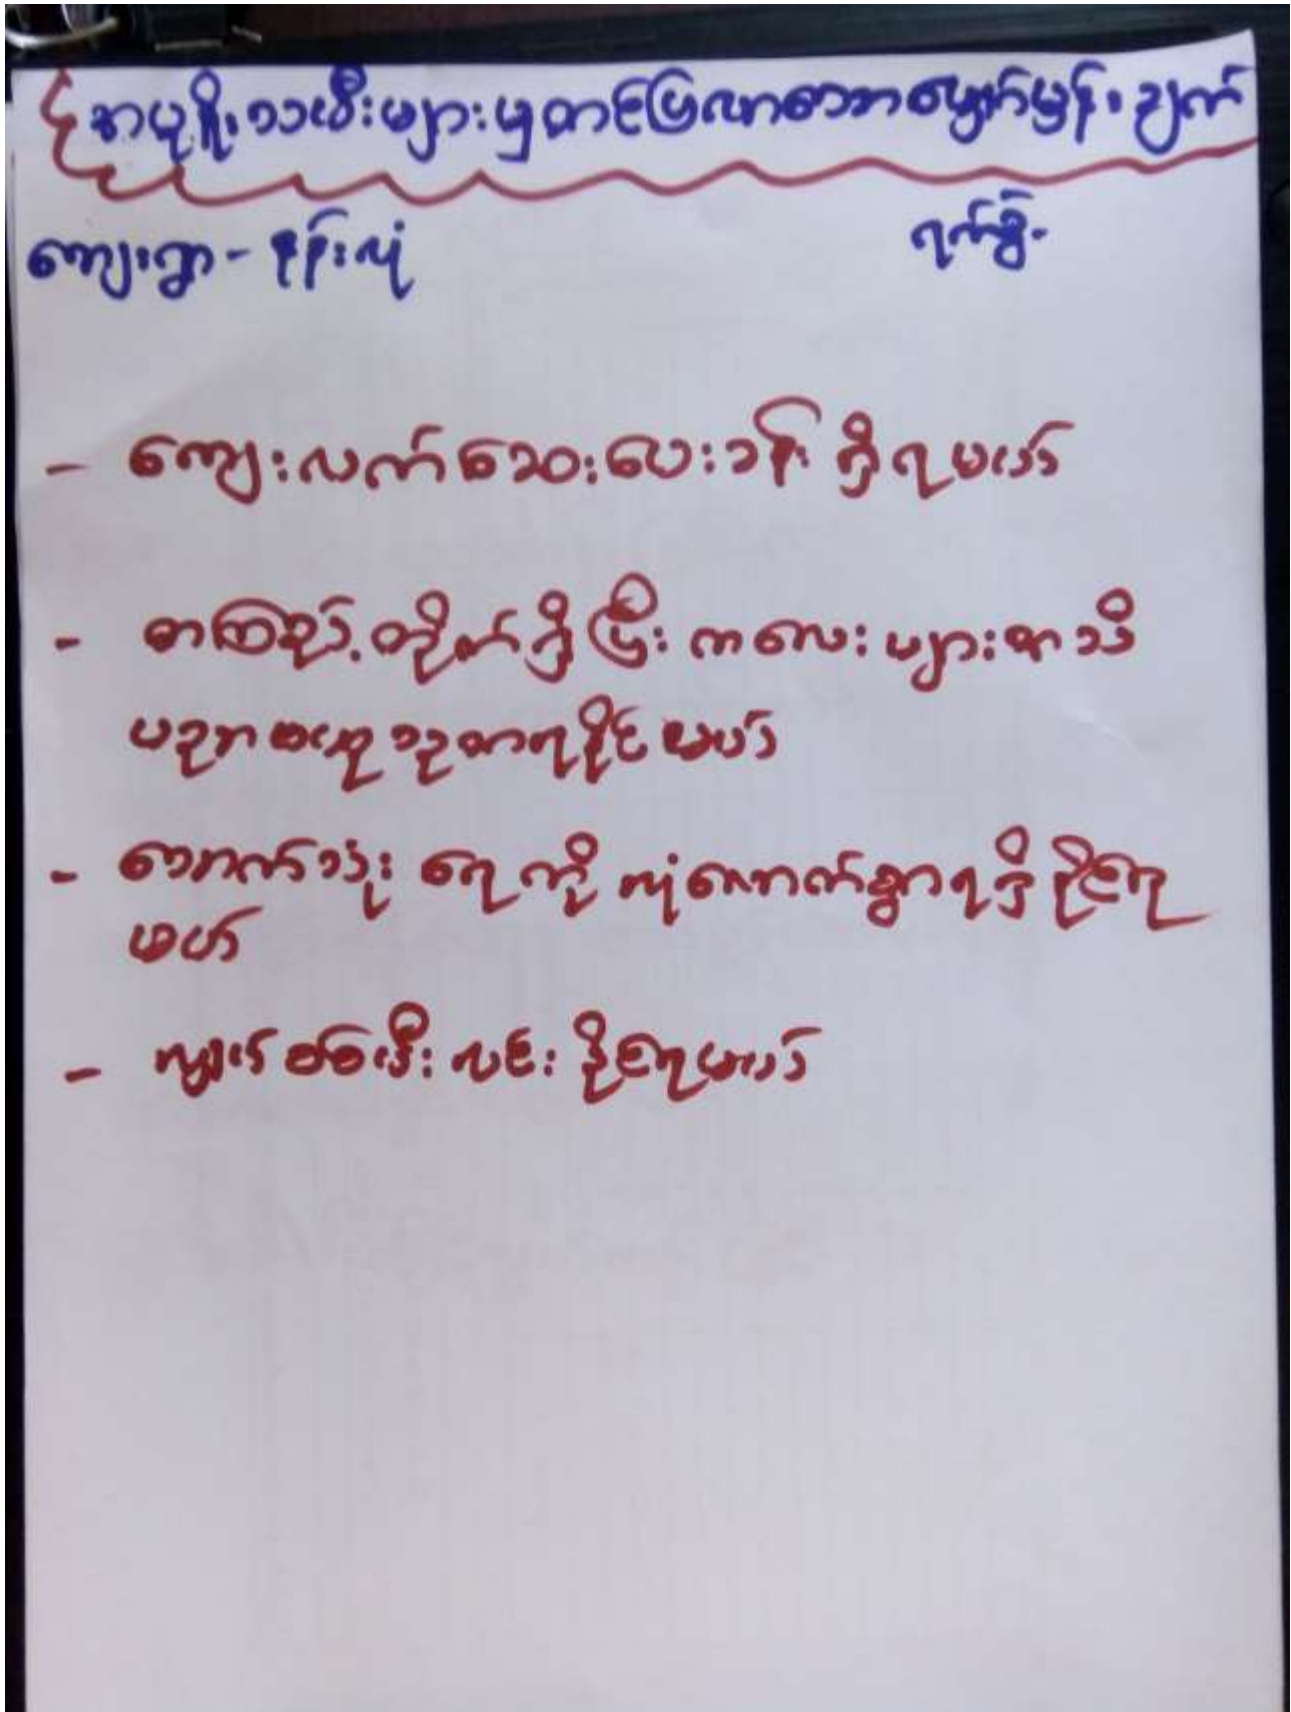 အမျိုးသမီးများမှတင်ပြလာသောမျှော်မှန်းချက်
ကျေးရွာ - နန်းလုံ ရက်စွဲ-
- ကျေးလက်ဆေးပေးခန်း ရှိရမယ်
- စာကြည့်တိုက်ရှိပြီး ကလေးများအသိ
ပညာဗဟုသုတရနိုင်မယ်
- သောက်သုံးရေကို လုံလောက်စွာရရှိနိုင်ရ
မယ်
- လျှပ်စစ်မီးလင်းနိုင်ရမယ်